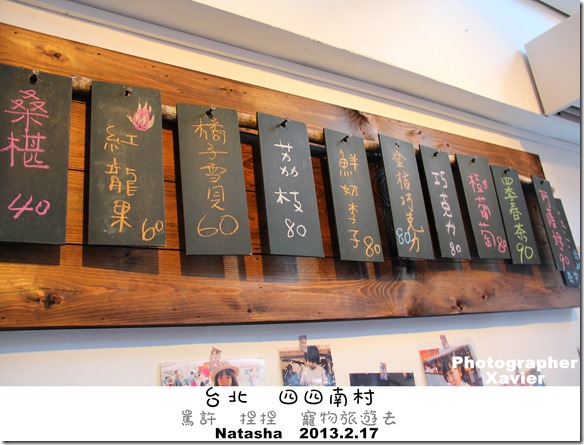 桑椹
40
紅龍果
60
橘子雪貝
60
荔枝
80
鮮奶李子
80
金桔巧克力
80
巧克力
80
極葡萄
80
四季春茶
90
90
Photographer
Xavier
台北 四四南村
駡許 捏捏 寵物旅遊去
Natasha 2013.2.17